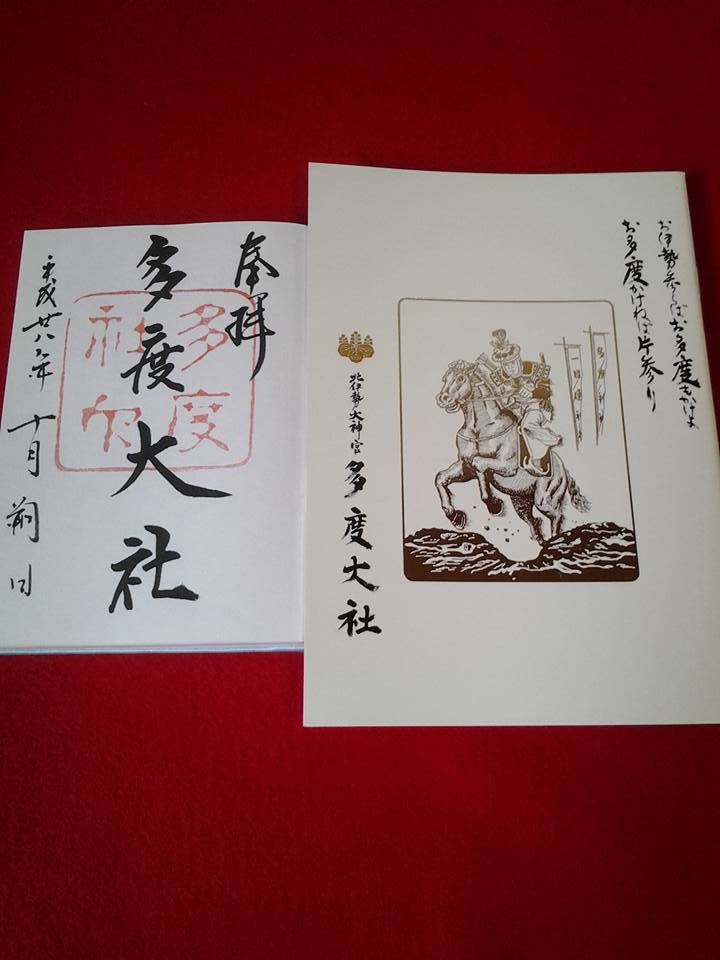 奉拝
多度大社
多度
社印
平成廿八年 十月朔日
お伊勢参らばお多度もかけよ
お多度かけねば片参り
北伊勢大神宮 多度大社